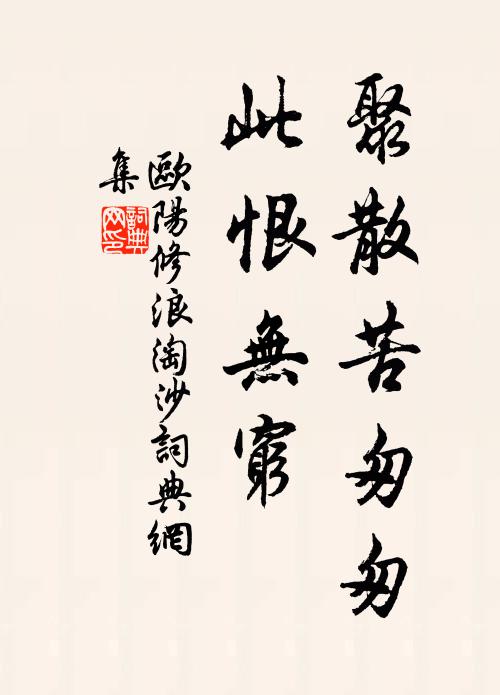 聚散苦匆匆
此恨無窮
歐陽修浪淘沙詞典網
集
詞典網印